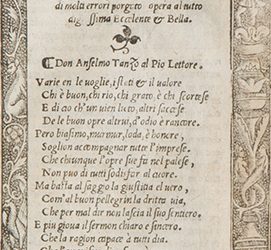 di molti errori porgato opera al tutto
dig issima Eccelente & Bella.
Don Anselmo Tanzo al Pio Lettore.
Varie en le uoglie, i stati & il ualore
Chi è buon, chi rio, chi grato, è chi scortese
E di ciò ch'un uien lieto, altri
De le buon opre altrui, d'odio è rancore.
Pero biasimo, murmur, loda, è honore,
Soglion accompagnar tutte l'imprese.
Che chaunque l'opre sue fa nel palese,
Non puo di tutti sodisfar al cuore.
Ma basta al saggio la giustitia el uero,
Com' al buon pellegrin la dritta uia,
Che per mal dir non lascia il suo sentiero.
E piu gioua il sermon chiaro e sincero
Che la ragion capace à tutti dia.